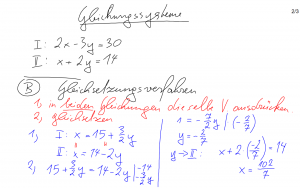 Gleichungssysteme
2/3
I: 2x - 3y = 30
II: x + 2y = 14
B Gleichsetzungsverfahren
1, in beiden Gleichungen dieselbe V ausdrücken
2, gleichsetzen
1, I: x = 15 + 3/2 y
II: x = 14 - 2y
2, 15 + 3/2 y = 14 - 2y | -14
-3/2 y
1 = -7/2 y | ·(-2/7)
y = -2/7
y → II: x + 2·(-2/7) = 14
x = 102/7